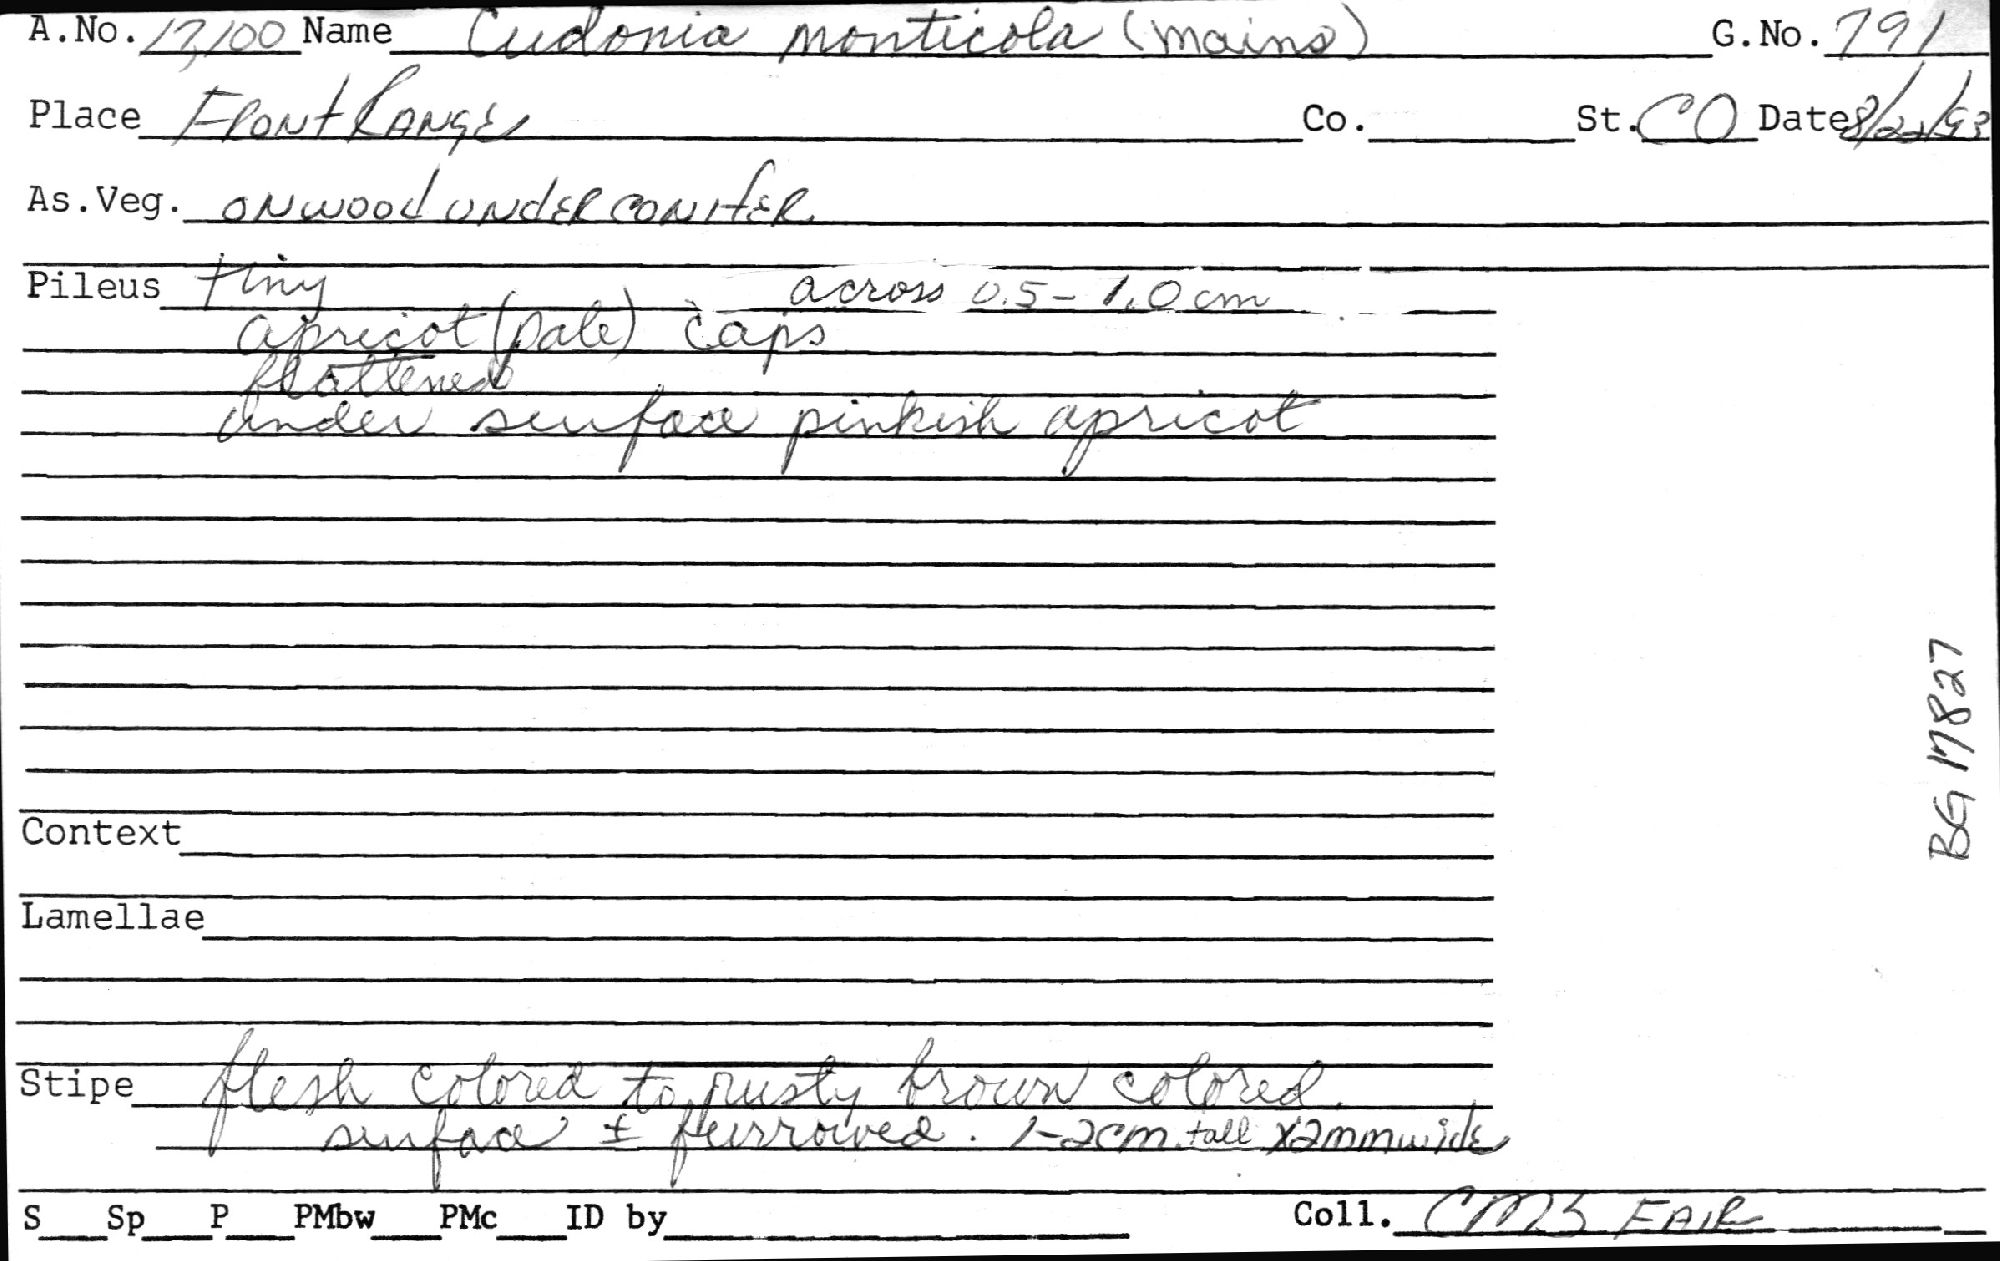 A.No. 17,100 Name Cudonia monticola (Mains) G.No. 791
Place Front Range Co. St. CO Date 8/22/93
As.Veg. on wood under conifer
Pileus tiny across 0.5-1.0 cm
apricot (pale) caps
flattened
under surface pinkish apricot
BG 17827
Context
Lamellae
Stipe flesh colored to rusty brown colored.
surface ± furrowed. 1-2cm tall x 2mm wide
S Sp P PMbw PMc ID by Coll. CMS FAIR